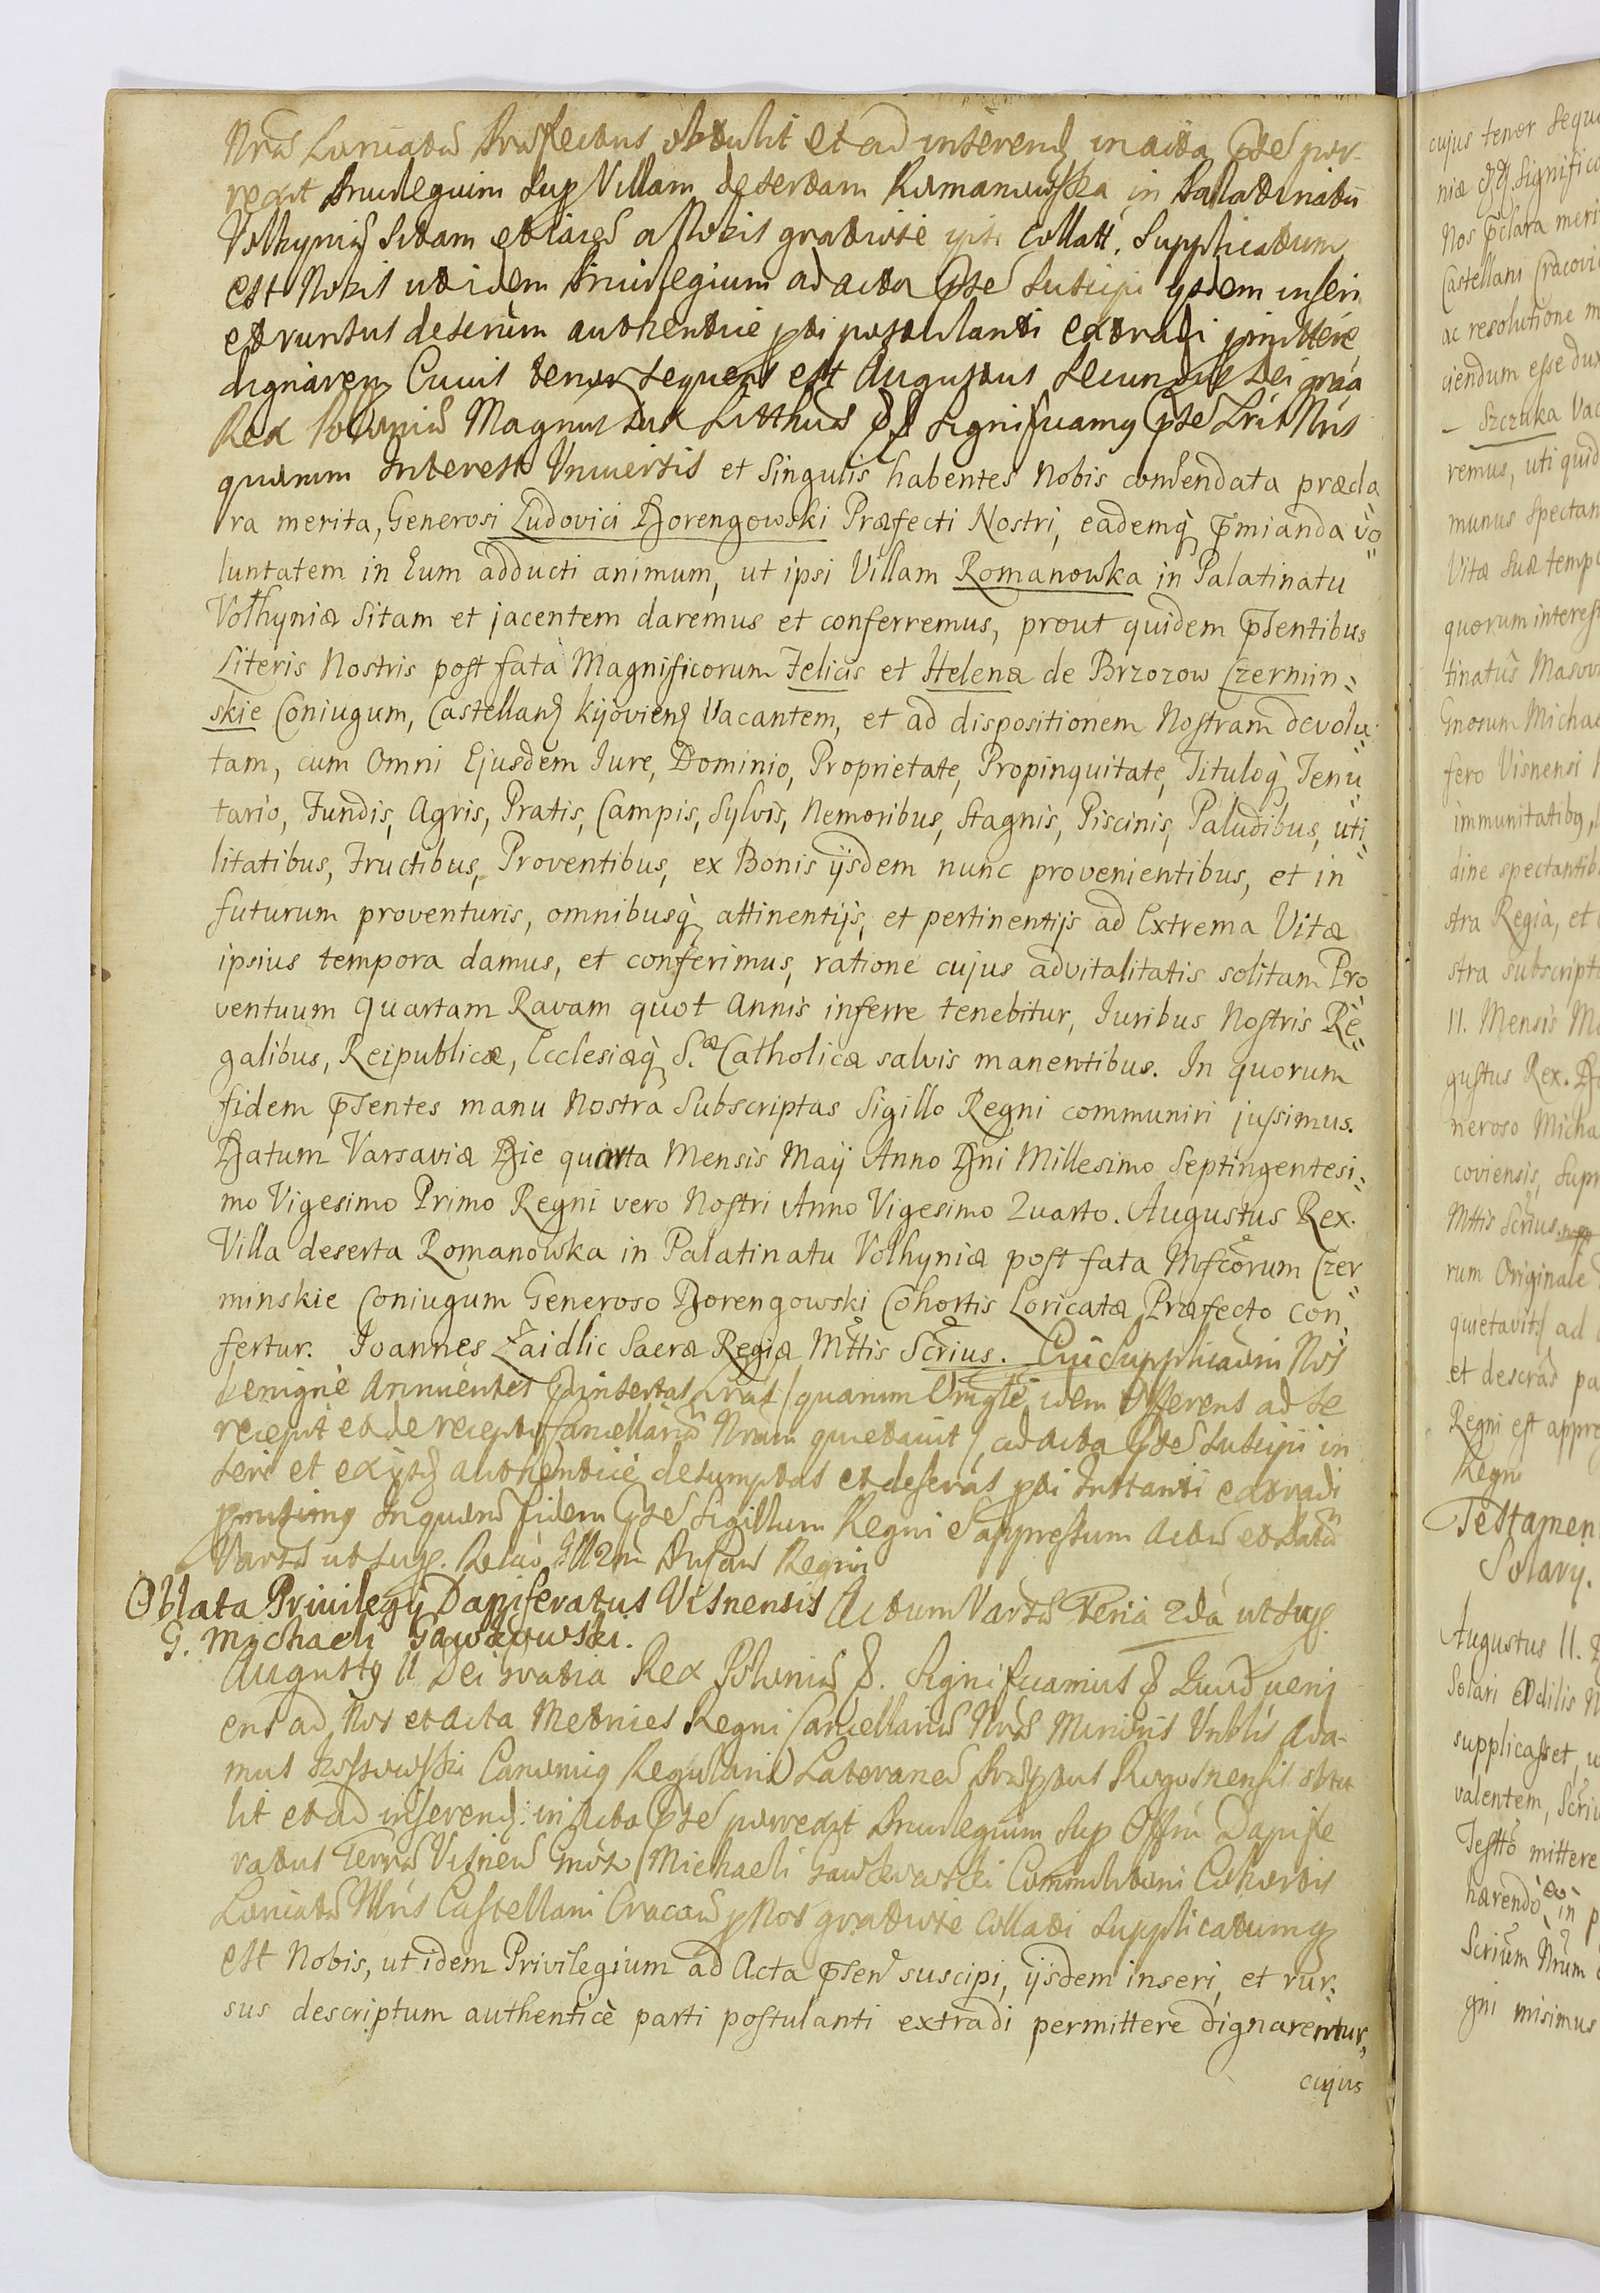 Nrae Loricatae Praefectus obtulit et ad inserend. in acta pntes por-
rexit Privilegium sup Villam desertam Romanowska in Palatinatu
Volhyniae sitam et iacen a Nobis gratiose ipsi collatt. Supplicatum
est Nobis ut idem Privilegium ad acta pnte suscipi ysdem inseri
et rursus descrium authentice pti postulanti extradi pmittere
dignarem Cuius tenor sequens est Augustus Secundus Dei gráa
Rex Poloniae Magnus Dux Litthuae & Significamus pnte Lris Nris
quorum interest Universis et Singulis habentes Nobis comendata præcla
ra merita, Generosi Ludovici Dorengowski Præfecti Nostri, eademq pmianda vo=
luntatem in Eum adducti animum, ut ipsi Villam Romanowka in Palatinatu
Volhyniæ Sitam et jacentem daremus et conferremus, prout quidem psentibus
Literis Nostris post fata Magnificorum Felicis et Helenæ de Brzozow Czermin=
skie Coniugum, Castellan Kijovien Vacantem, et ad dispositionem Nostram devolu=
tam, cum Omni Ejusdem Iure, Dominio, Proprietate, Propinquitate, Tituloq Tenu=
tario, Fundis, Agris, Pratis, Campis, Sylvis, Nemoribus, Stagnis, Piscinis, Paludibus, uti=
litatibus, Fructibus, Proventibus, ex Bonis ijsdem nunc provenientibus, et in
futurum proventuris, omnibusq attinentijs, et pertinentijs ad Extrema Vitæ
ipsius tempora damus, et conferimus, ratione cujus advitalitatis solitam Pro
ventuum Quartam Ravam quot Annis inferre tenebitur, Iuribus Nostris Re=
galibus, Reipublicæ, Ecclesiæq S.æ Catholicæ salvis manentibus. In quorum
fidem psentes manu Nostra Subscriptas Sigillo Regni communiri jussimus.
Datum Varsaviæ Die quarta Mensis Maij Anno Dni Millesimo Septingentesi=
mo Vigesimo Primo Regni vero Nostri Anno Vigesimo Quarto. Augustus Rex.
Villa deserta Romanowka in Palatinatu Volhyniæ post fata Mfcorum Czer
minskie Coniugum Generoso Dorengowski Cohortis Loricatæ Præfecto con=
fertur. Ioannes Zaidlic Sacræ Regiæ Mttis Scrius. Cui Supplicaoni Nos
benigne Annuentes pinsertas Lras (quarum Origle idem Offerens ad se
recepit et de recepto Cancellariam Nram quietavit) ad acta pnte suscipi in
seri et ex ijsd authentice desumptas et descrás pti Instanti extradi
pmisimus In quorum fidem pnte Sigillum Regni e appressum Actum et Datum
Vars ut sup. Relao
Oblata Privilegij Dapiferatus Visnensis Actum Vars Feria 2da ut sup.
G. Michaeli Gawkowski.
Augustus II Dei Gratia Rex Poloniae &. Significamus & Quod veni
ens ad Nos et Acta Metrices Regni Cancellariae Nrae Minoris Vnblis Ada-
mus Kossowski Canonicus Regularis Lateranen Praeptus Rogosnensis obtu
lit et ad inserend: in Acta pnte porrexit Privilegium sup Offm Dapife
ratus Terrae Visnen Gnoso Michaeli Gawkowski Commilitoni Cohortis
Loricatae Mris Castellani Cracov p Nos gratiose Collati Supplicatumq
est Nobis, ut idem Privilegium ad Acta psen suscipi, ijsdem inseri, et rur=
sus descriptum authenticè parti postulanti extradi permittere dignarentur,
cujus
cujus tenor sequi
niæ & Significa
Nos pclara meri
Castellani Cracovi
ac resolutione m
ciendum esse dux
Szczuka Vac
remus, uti quid
munus spectan
Vitæ suæ tempo
quorum interest
tinatus Masov
Gnosum Michae
fero Visnensi
immunitatibq,
dine spectantib
stra Regia, et
stra subscript
11. Mensis Ma
gustus Rex. D
neroso Micha
coviensis, supr
Mttis Scrius
rum Originale
quietavit ad
et descrás pa
Regni est appre
Regni
Testamen
Solary.
Augustus II. D
Solari Edilis N
supplicasset, u
valentem, Scriu
Testto mittere
hærendo in p
Scrium Nrum
gni misimus